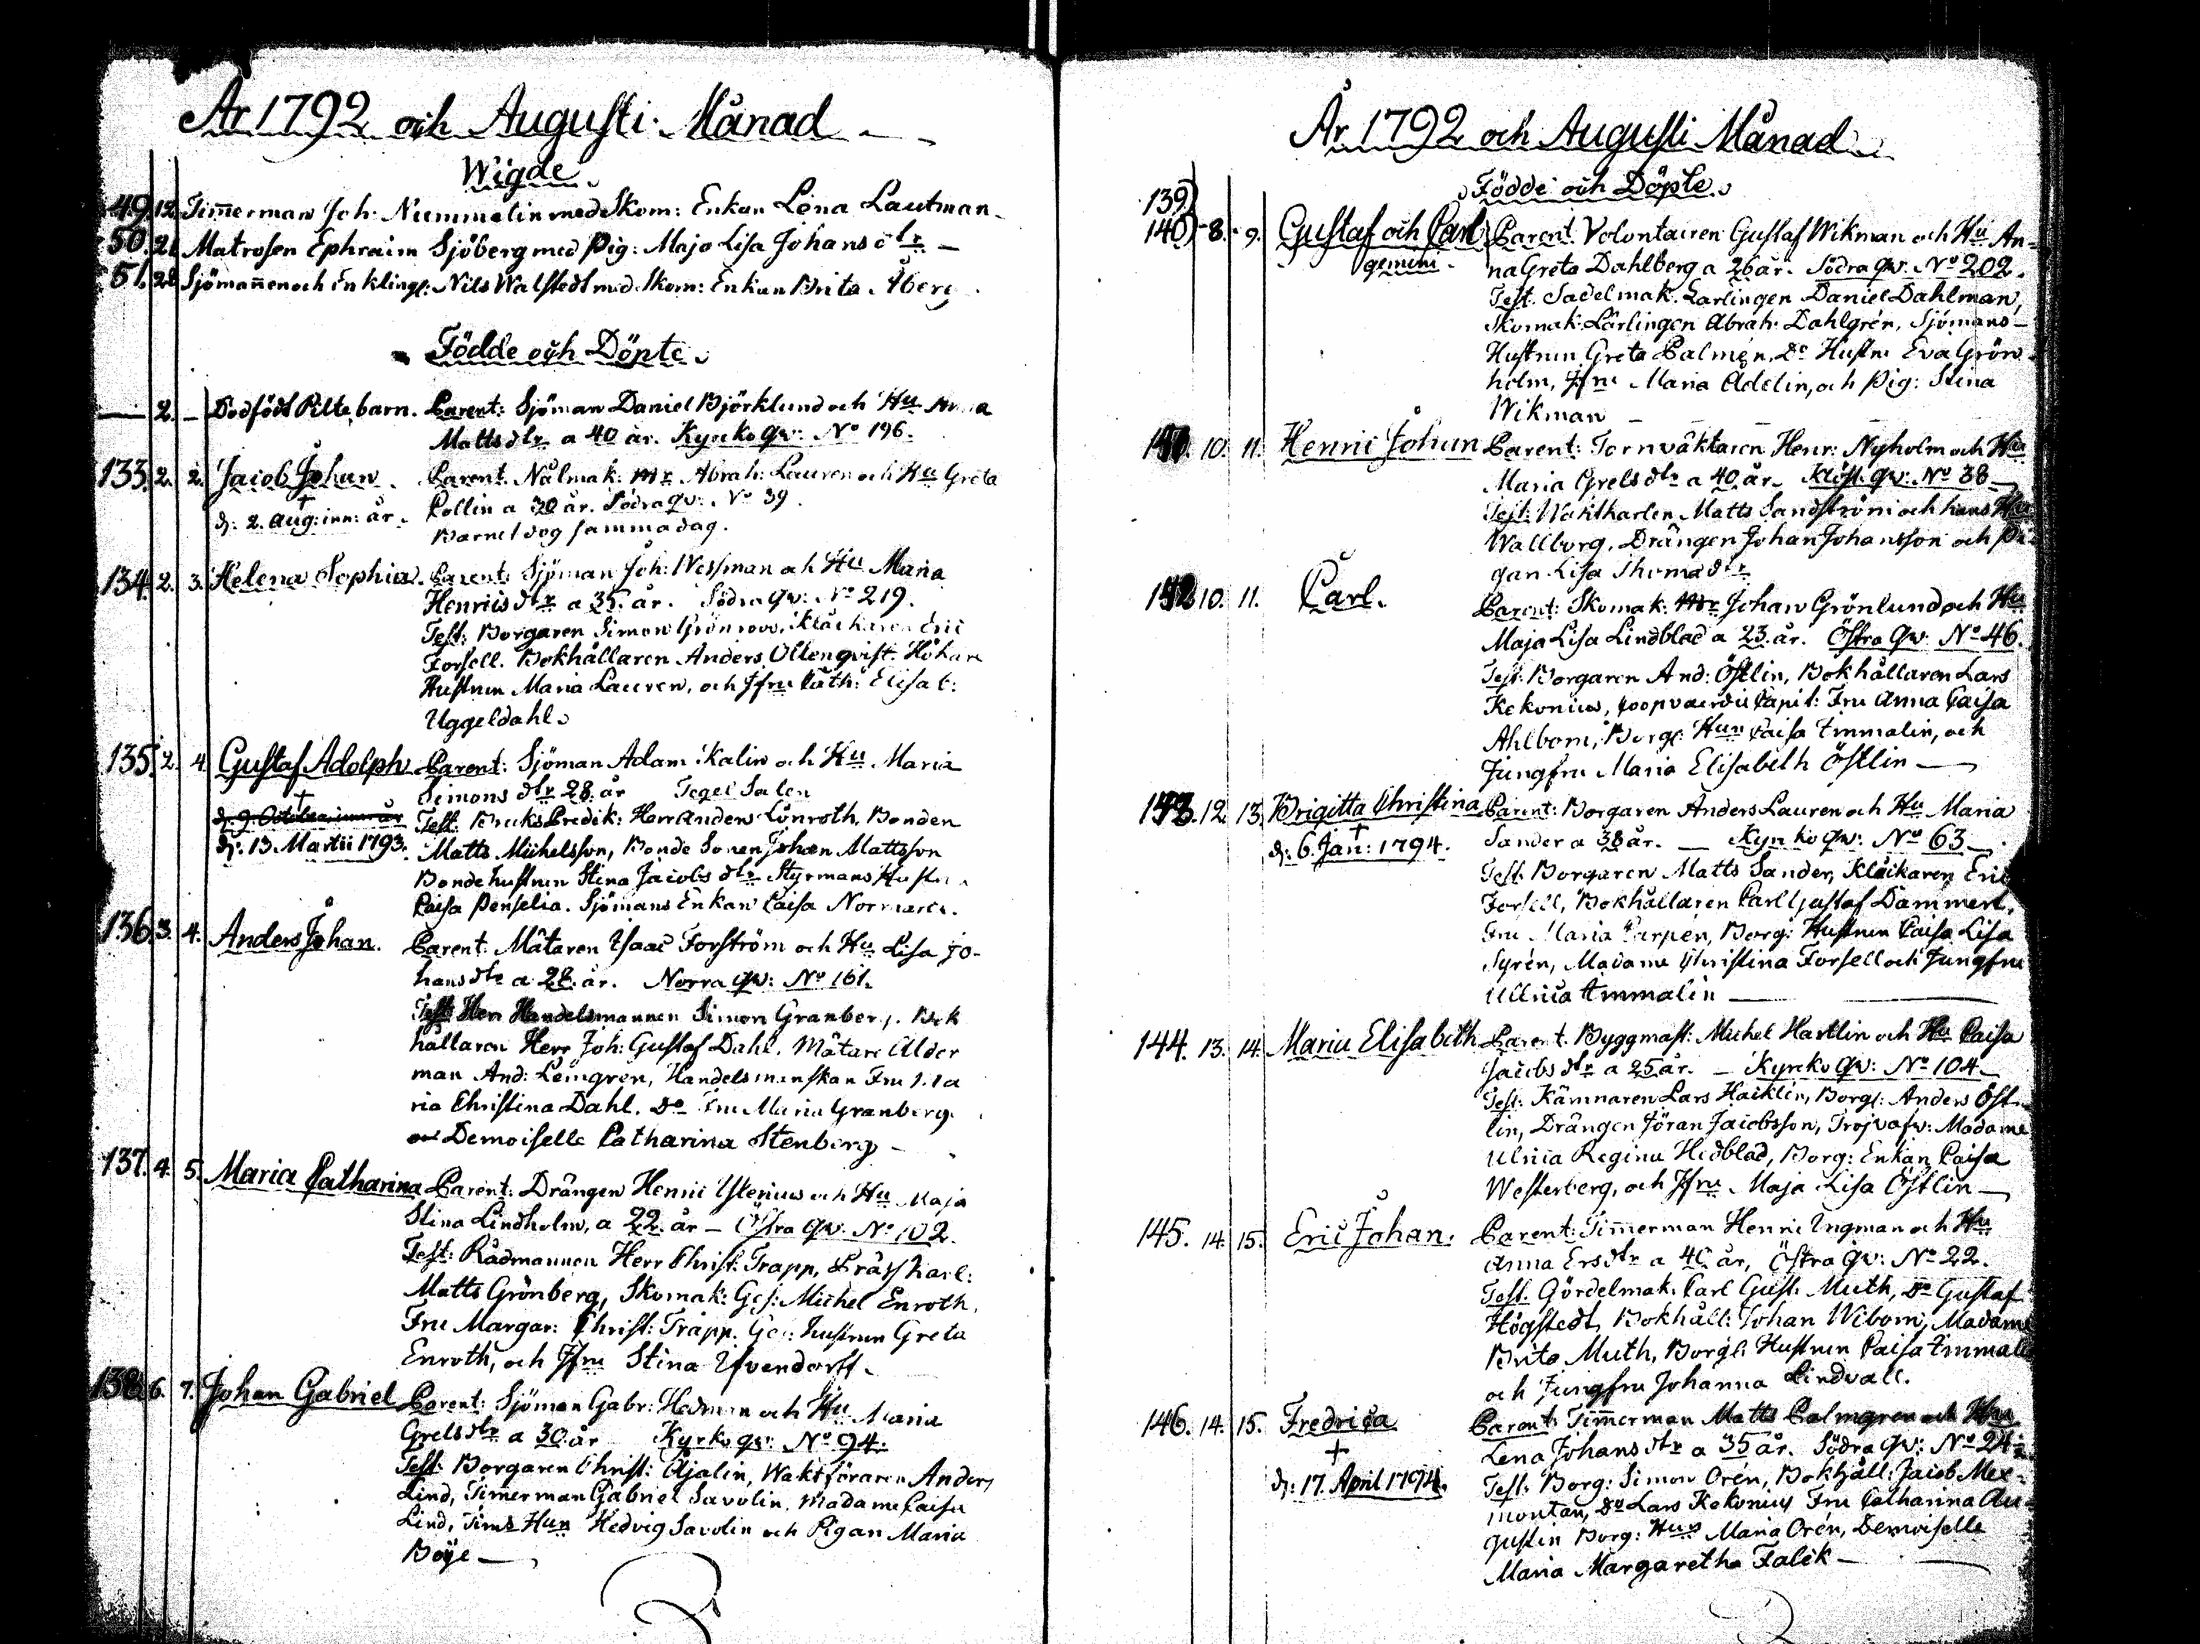 År 1792 och Augusti Månad
Wigde
49. 12. Tim̄erman Joh: Nummelin med Skom: Enkan Lena Lautman
50. 21. Matrosen Ephraim Sjöberg med Pig: Maja Lisa Johans dtr
51. 28. Sjöman̄en och Enklingⱼ: Nils Walstedt med Skom: Enkan Brita Åberg
Födde och Döpte
— 2. — Dödfödt Piltebarn. Parent: Sjöman Daniel Björklund och Hu Anna
Matts dtr a 40 år. Kyrko qv: No 196.
133. 2. 2. Jacob Johan. Parent. Nålmak: Mr Abrah: Lauren och Hu Greta
† Pollin a 30 år. Södra qv: No 39.
d: 2. Aug: inn: år. Barnet dog samma dag.
134. 2. 3. Helena Sophia. Parent: Sjöman Joh: Wessman och Hu Maria
Henrics dtr a 35. år. Södra qv: No 219.
Test: Borgaren Simon Grönroos, Klåckaren Eric
Forsell. Bokhållaren Anders Oltenqvist. Hökare
Hustrun Maria Lauren, och Jfru Cath: Elisab:
Uggeldahl.
135. 2. 4. Gustaf Adolph Parent: Sjöman Adam Kalin och Hu Maria
† Simons dtr 28. år Tegel Salen
d: 9. October innev: år Test: Bruks Predik: Herr Anders Lönroth, Bonden
d: 13 Martii 1793. Matts Michelsson, Bonde Sonen Johan Mattsson
Bonde hustrun Stina Jacobs dtr Styrmans Hustru
Caisa Penselia. Sjömans Enkan Caisa
136. 3. 4. Anders Johan. Parent: Mätaren Isaac Forström och Hu Lisa Jo-
hans dtr a 28. år. Norra qv: No 161.
Test: Herr Handelsmannen Simon Granberg. Bok
hållaren Herr Joh: Gustaf Dahl. Mätare Ålder
man And: Lemgren, Handelsmanskan Fru Ma
ria Christina Dahl. Do Fru Maria Granberg.
Demoiselle Catharina Stenberg
137. 4. 5. Maria Catharina Parent: Drängen Henric Ytterius och Hu Maja
Stina Lindholm, a 22. år — Östra qv: No 102.
Test: Rådmannen Herr Christ: Trapp, karl:
Matts Grönberg, Skomak: Ges: Michel Enroth,
Fru Margar: Christ: Trapp. Ges: hustrun Greta
Enroth, och Jfru Stina
138. 6. 7. Johan Gabriel Parent: Sjöman Gabr: Hedman och Hu Maria
Grels dtr a 30. år Kyrko qv: No 94.
Test: Borgaren Christ: Ajalin, Waktföraren Anders
Lind, Tim̄erman Gabriel Savolin. Madame Caisa
Lind, Tims Hun Hedvig Savolin och Pigan Maria
Boije —
År 1792 och Augusti Månad
Födde och Döpte
139)
140) 8. 9. Gustaf och Carl Parent. Volontairen Gustaf Wikman och Hu An-
gemini. na Greta Dahlberg a 26 år. Södra qv. No 202.
Test. Sadelmak. Lärlingen Daniel Dahlman,
Skomak: Lärlingen Abrah: Dahlgrén, Sjömans-
Hustrun Greta Palmén, Do Hustru Eva Grön-
holm, Jfru Maria Adelin, och Pig: Stina
Wikman —
141. 10. 11. Henric Johan Parent: Tornväktaren Henr: Nyholm och Hu
Maria Grels dtr a 40. år. Klöst. qv: No 38
Test: Waktkarlen Matts Sandström och hans Hu
Wallborg, Drängen Johan Johansson och Pi-
gan Lisa Thoma dtr
142 10. 11. Carl. Parent: Skomak: Mr Johan Grönlund och Hu
Maja Lisa Lindblad a 23. år. Östra qv: No 46.
Test: Borgaren And: Östlin, Bokhållaren Lars
Kekonius, Coopvaerdie Capit: Fru Anna Caisa
Ahlbom, Borg: Hun Caisa Emmalin, och
Jungfru Maria Elisabeth Östlin —
143. 12. 13. Brigitta Christina Parent: Borgaren Anders Lauren och Hu Maria
† Sander a 38 år. — Kyrko qv: No 63 —
d: 6. Jan: 1794. Test. Borgaren Matts Sander, Klåckaren Eric
Forsell, Bokhållaren Carl Gustaf Dammert,
Fru Maria Carpén, Borg: Hustrun Caisa Lisa
Syrén, Madame Christina Forsell och Jungfru
Ullrica Emmalin —
144. 13. 14. Maria Elisabeth Parent. Byggmäst: Michel Hartlin och Hu Caisa
Jacobs dtr a 25 år. — Kyrko qv: No 104 —
Test: Kämnaren Lars Haiklin, Borg: Anders Öst-
lin, Drängen Jöran Jacobsson, Madame
Ulrica Regina Hedblad, Borg: Enkan Caisa
Westerberg, och Jfru Maja Lisa Östlin —
145. 14. 15. Eric Johan. Parent: Tim̄erman Henric Ingman och Hu
Anna Ersdtr a 40 år, Östra qv: No 22.
Test. Gördelmak. Carl Gust: Muth, Do Gustaf
Högstedt, Bokhåll: Johan Wibom, Madame
Brita Muth, Borgl: Hustrun Caisa Emmalin
och Jungfru Johanna Lindvall.
146. 14. 15. Fredrica Parent: Tim̄erman Matts Palmgren och Hu
† Lena Johans dtr a 35 år. Södra qv: No 24
d: 17. April 1794. Test: Borg: Simon Orén, Bokhåll: Jacob Mex-
montan, Do Lars Kekonius Fru Catharina Au-
gustin Borg: Hus Maria Orén, Demoiselle
Maria Margaretha Falck —